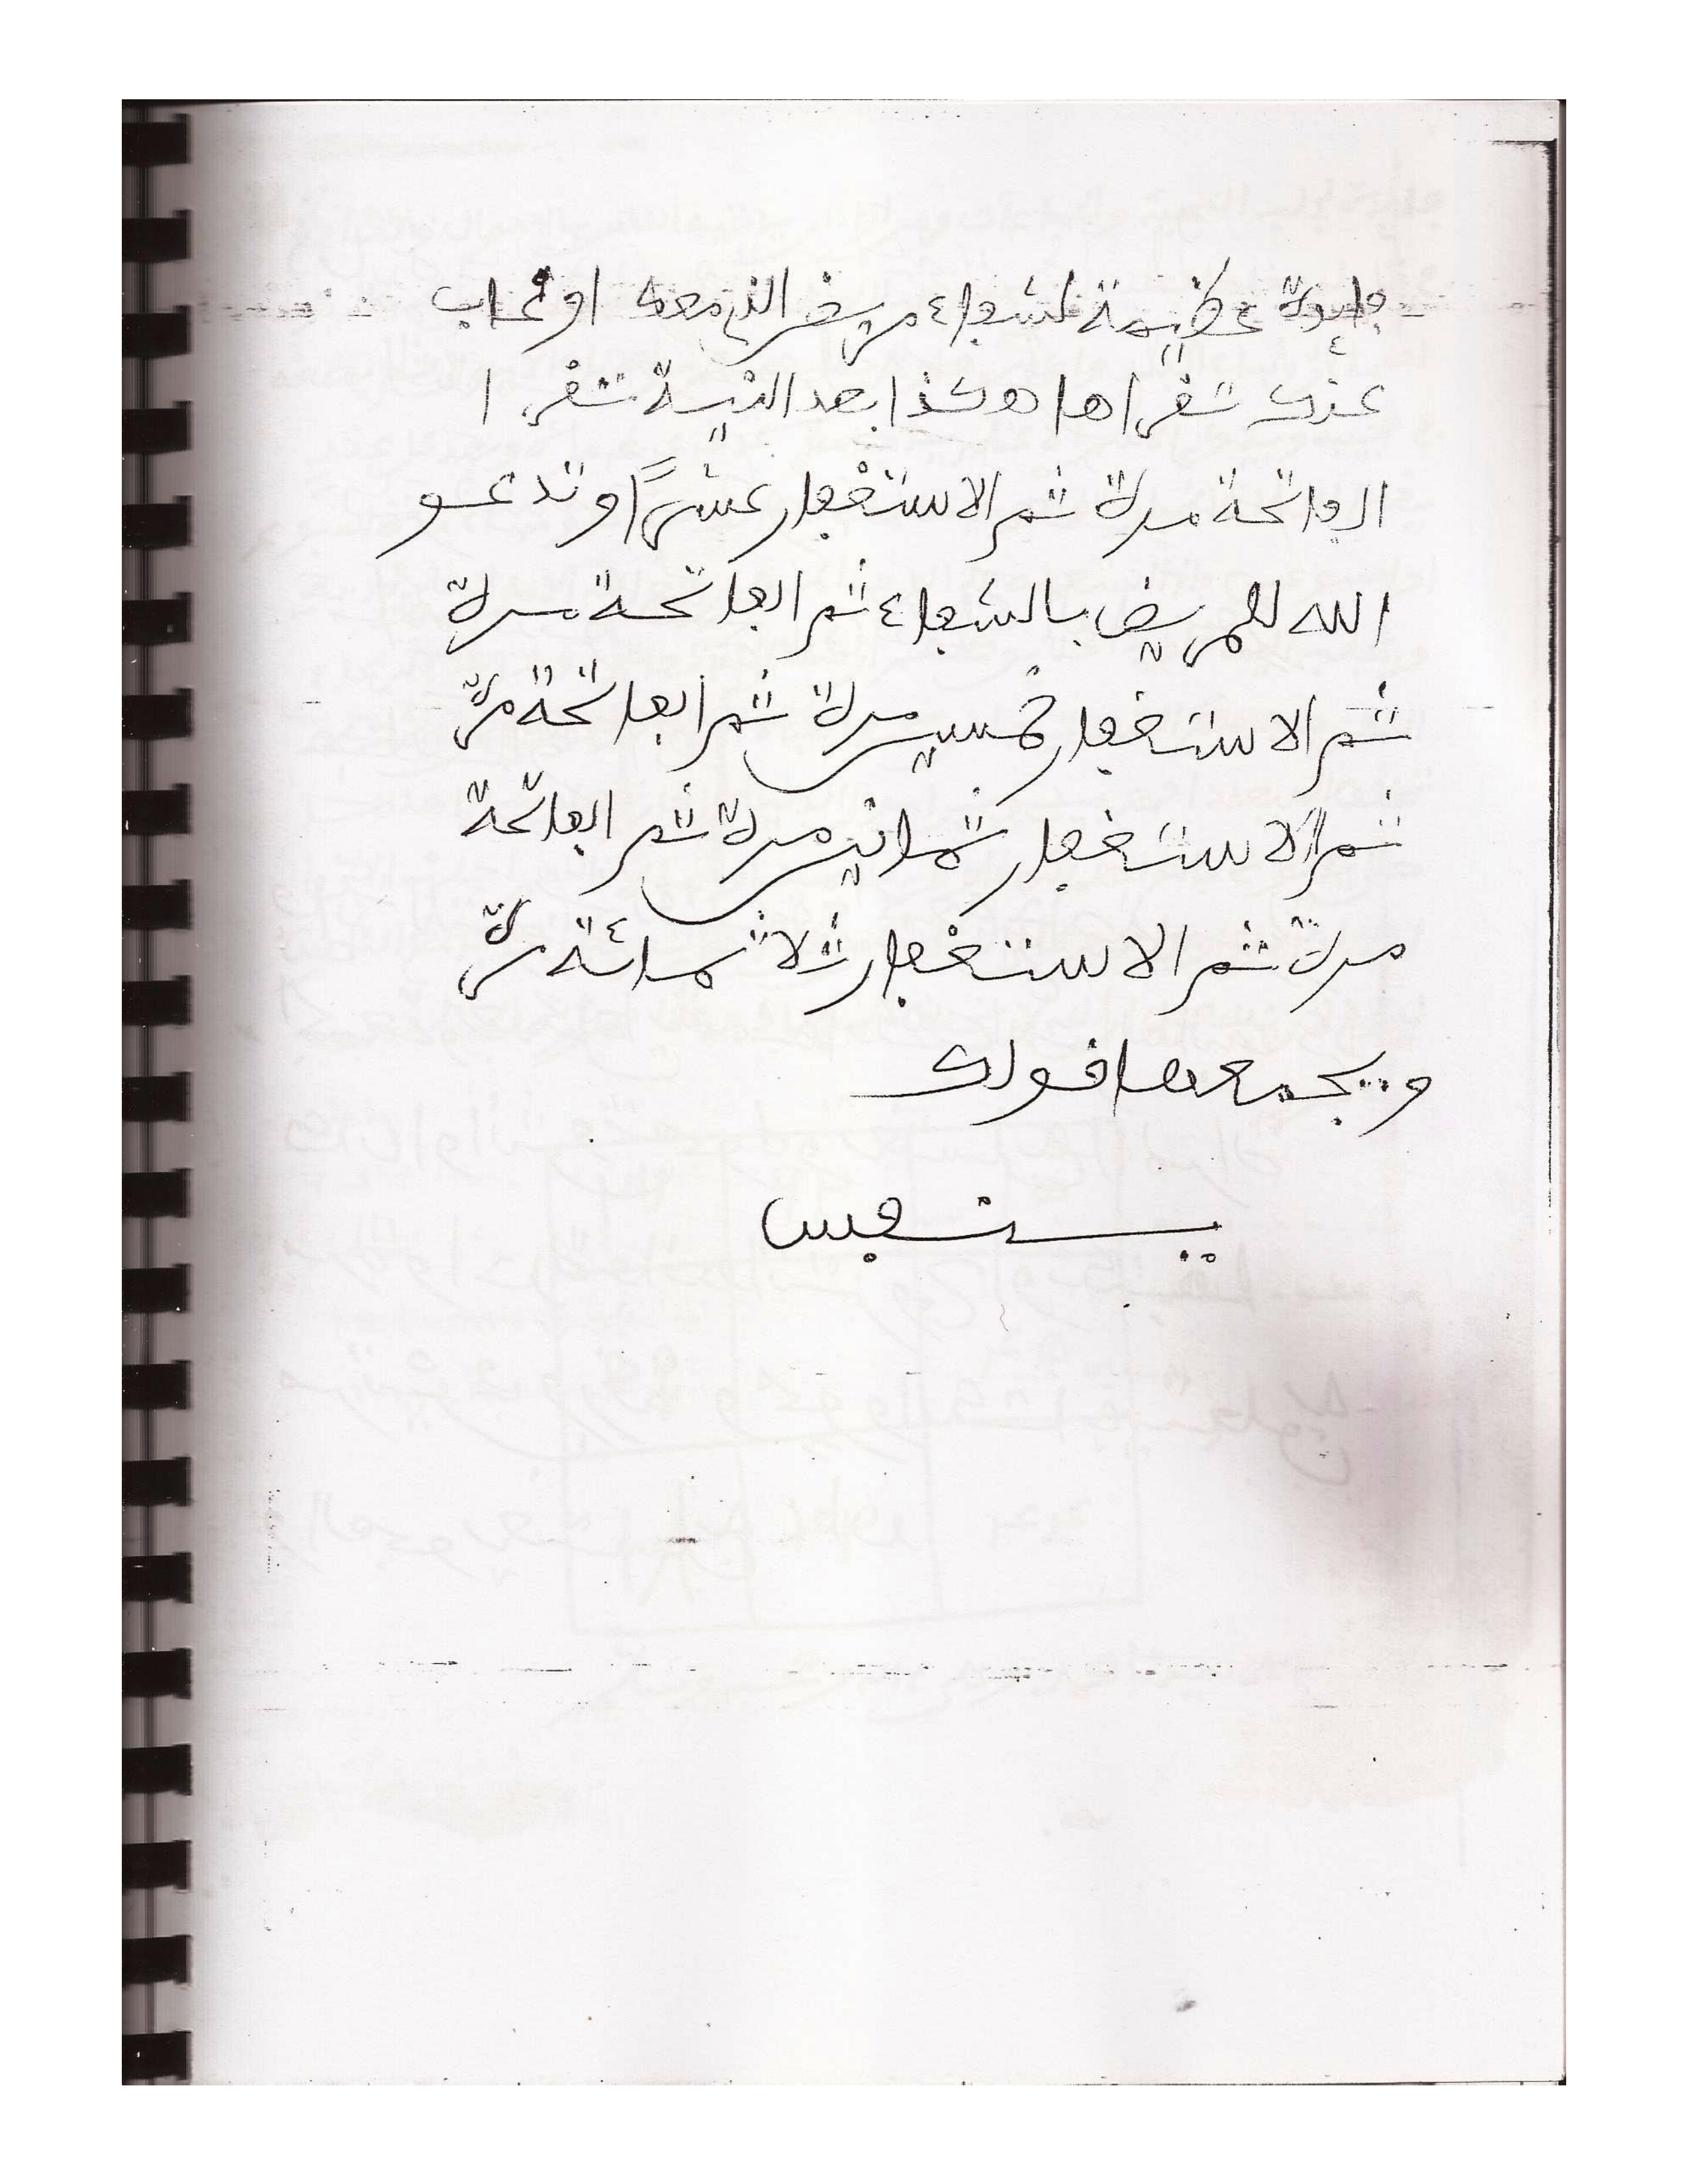 فائدة عظيمة لشفاء مريض الذي معك او غاب
عنك تقراها هكذا بعد النية تقرا
الفاتحة مرة ثم الاستغفار عشرًا وتدعو
الله للمريض بالشفاء ثم الفاتحة مرة
ثم الاستغفار خمسين مرة ثم الفاتحة مرة
ثم الاستغفار ثمانين مرة ثم الفاتحة
مرة ثم الاستغفار ثلاثمائة مرة
ويجمعها قولك